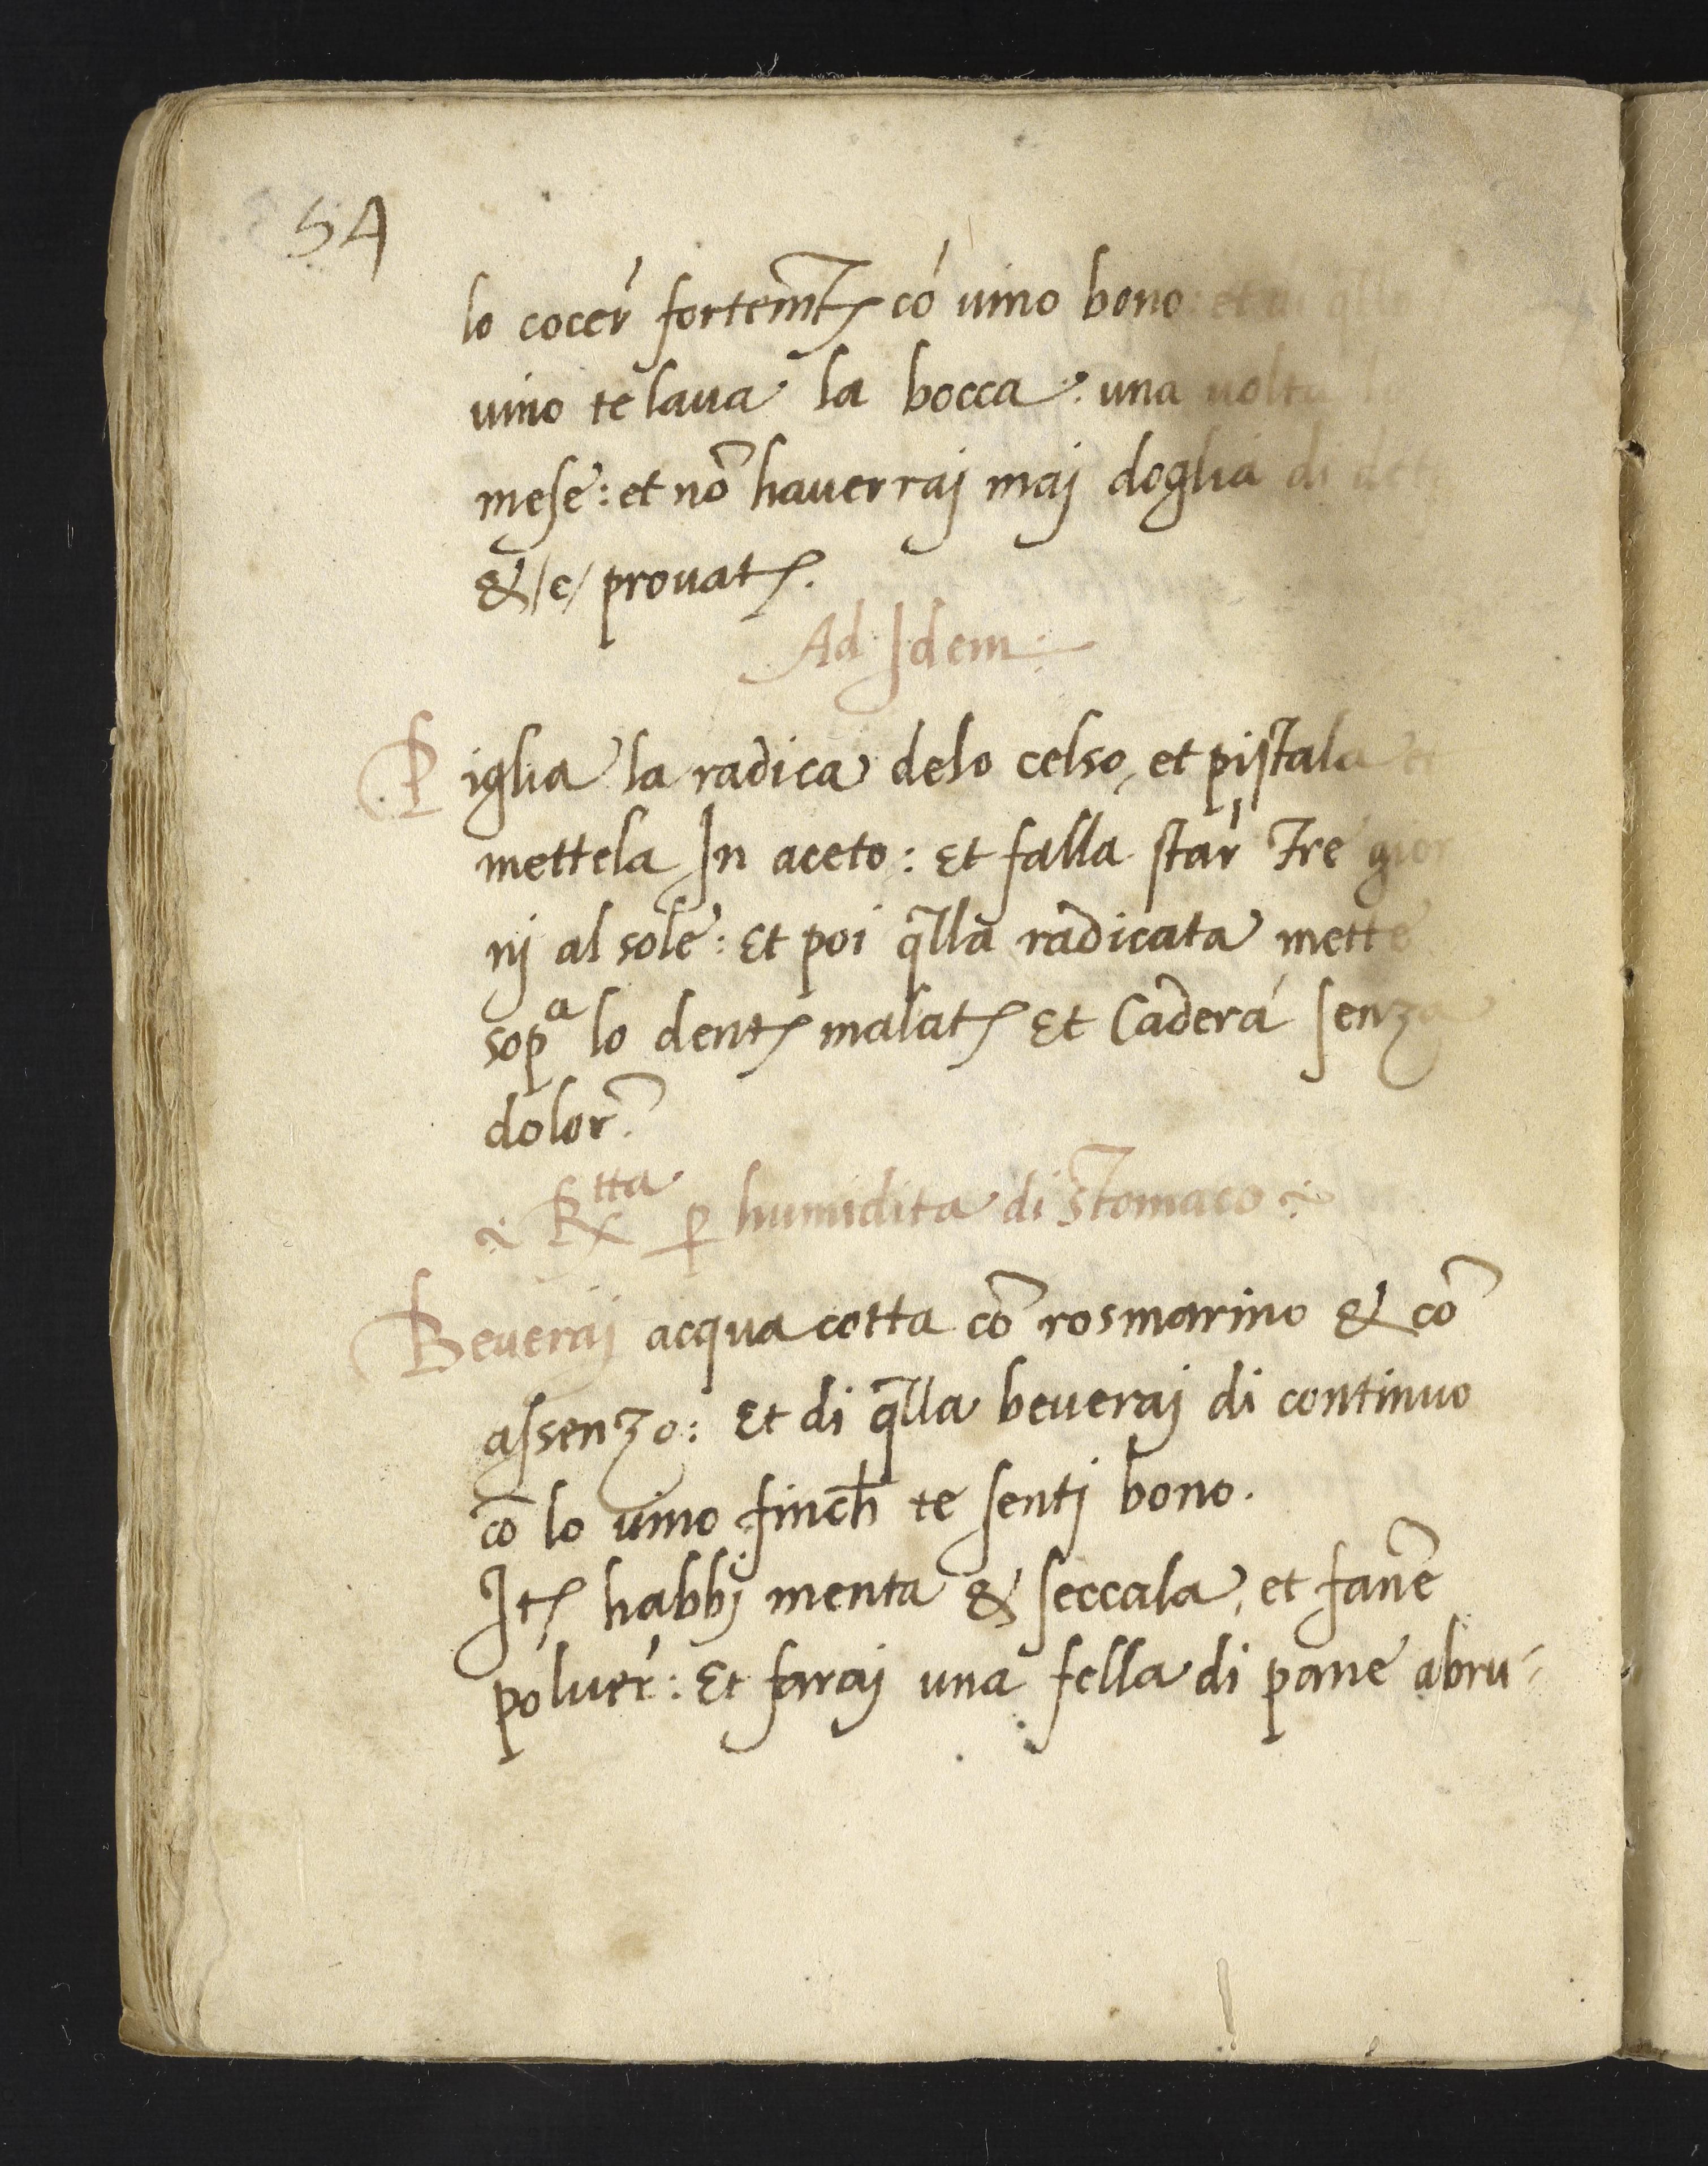 54
lo cocer̃ fortem̃t̃ cõ uino bono: et
uino te laua la bocca: una uolta
mese: et nõ hauerraj maj doglia di
& /e/ prouat̃.
Ad Idem
Piglia la radica delo celso, et pistala et
mettela In aceto: Et falla star̃ Tre gior
nj al sole: Et poi q̃lla radicata mette
sopᵃ lo dent̃ malat̃ Et Caderá senza
dolor̃.
R̃ᵗᵗᵃ ꝑ humidita di stomaco
Beueraj acqua cotta cõ rosmarino & cõ
assenzo: Et di q̃lla beueraj di continuo
cõ lo uino finch̃ te sentj bono.
It̃ habbj menta & seccala, et fanẽ
poluer̃: Et faraj una fella di pane abru=